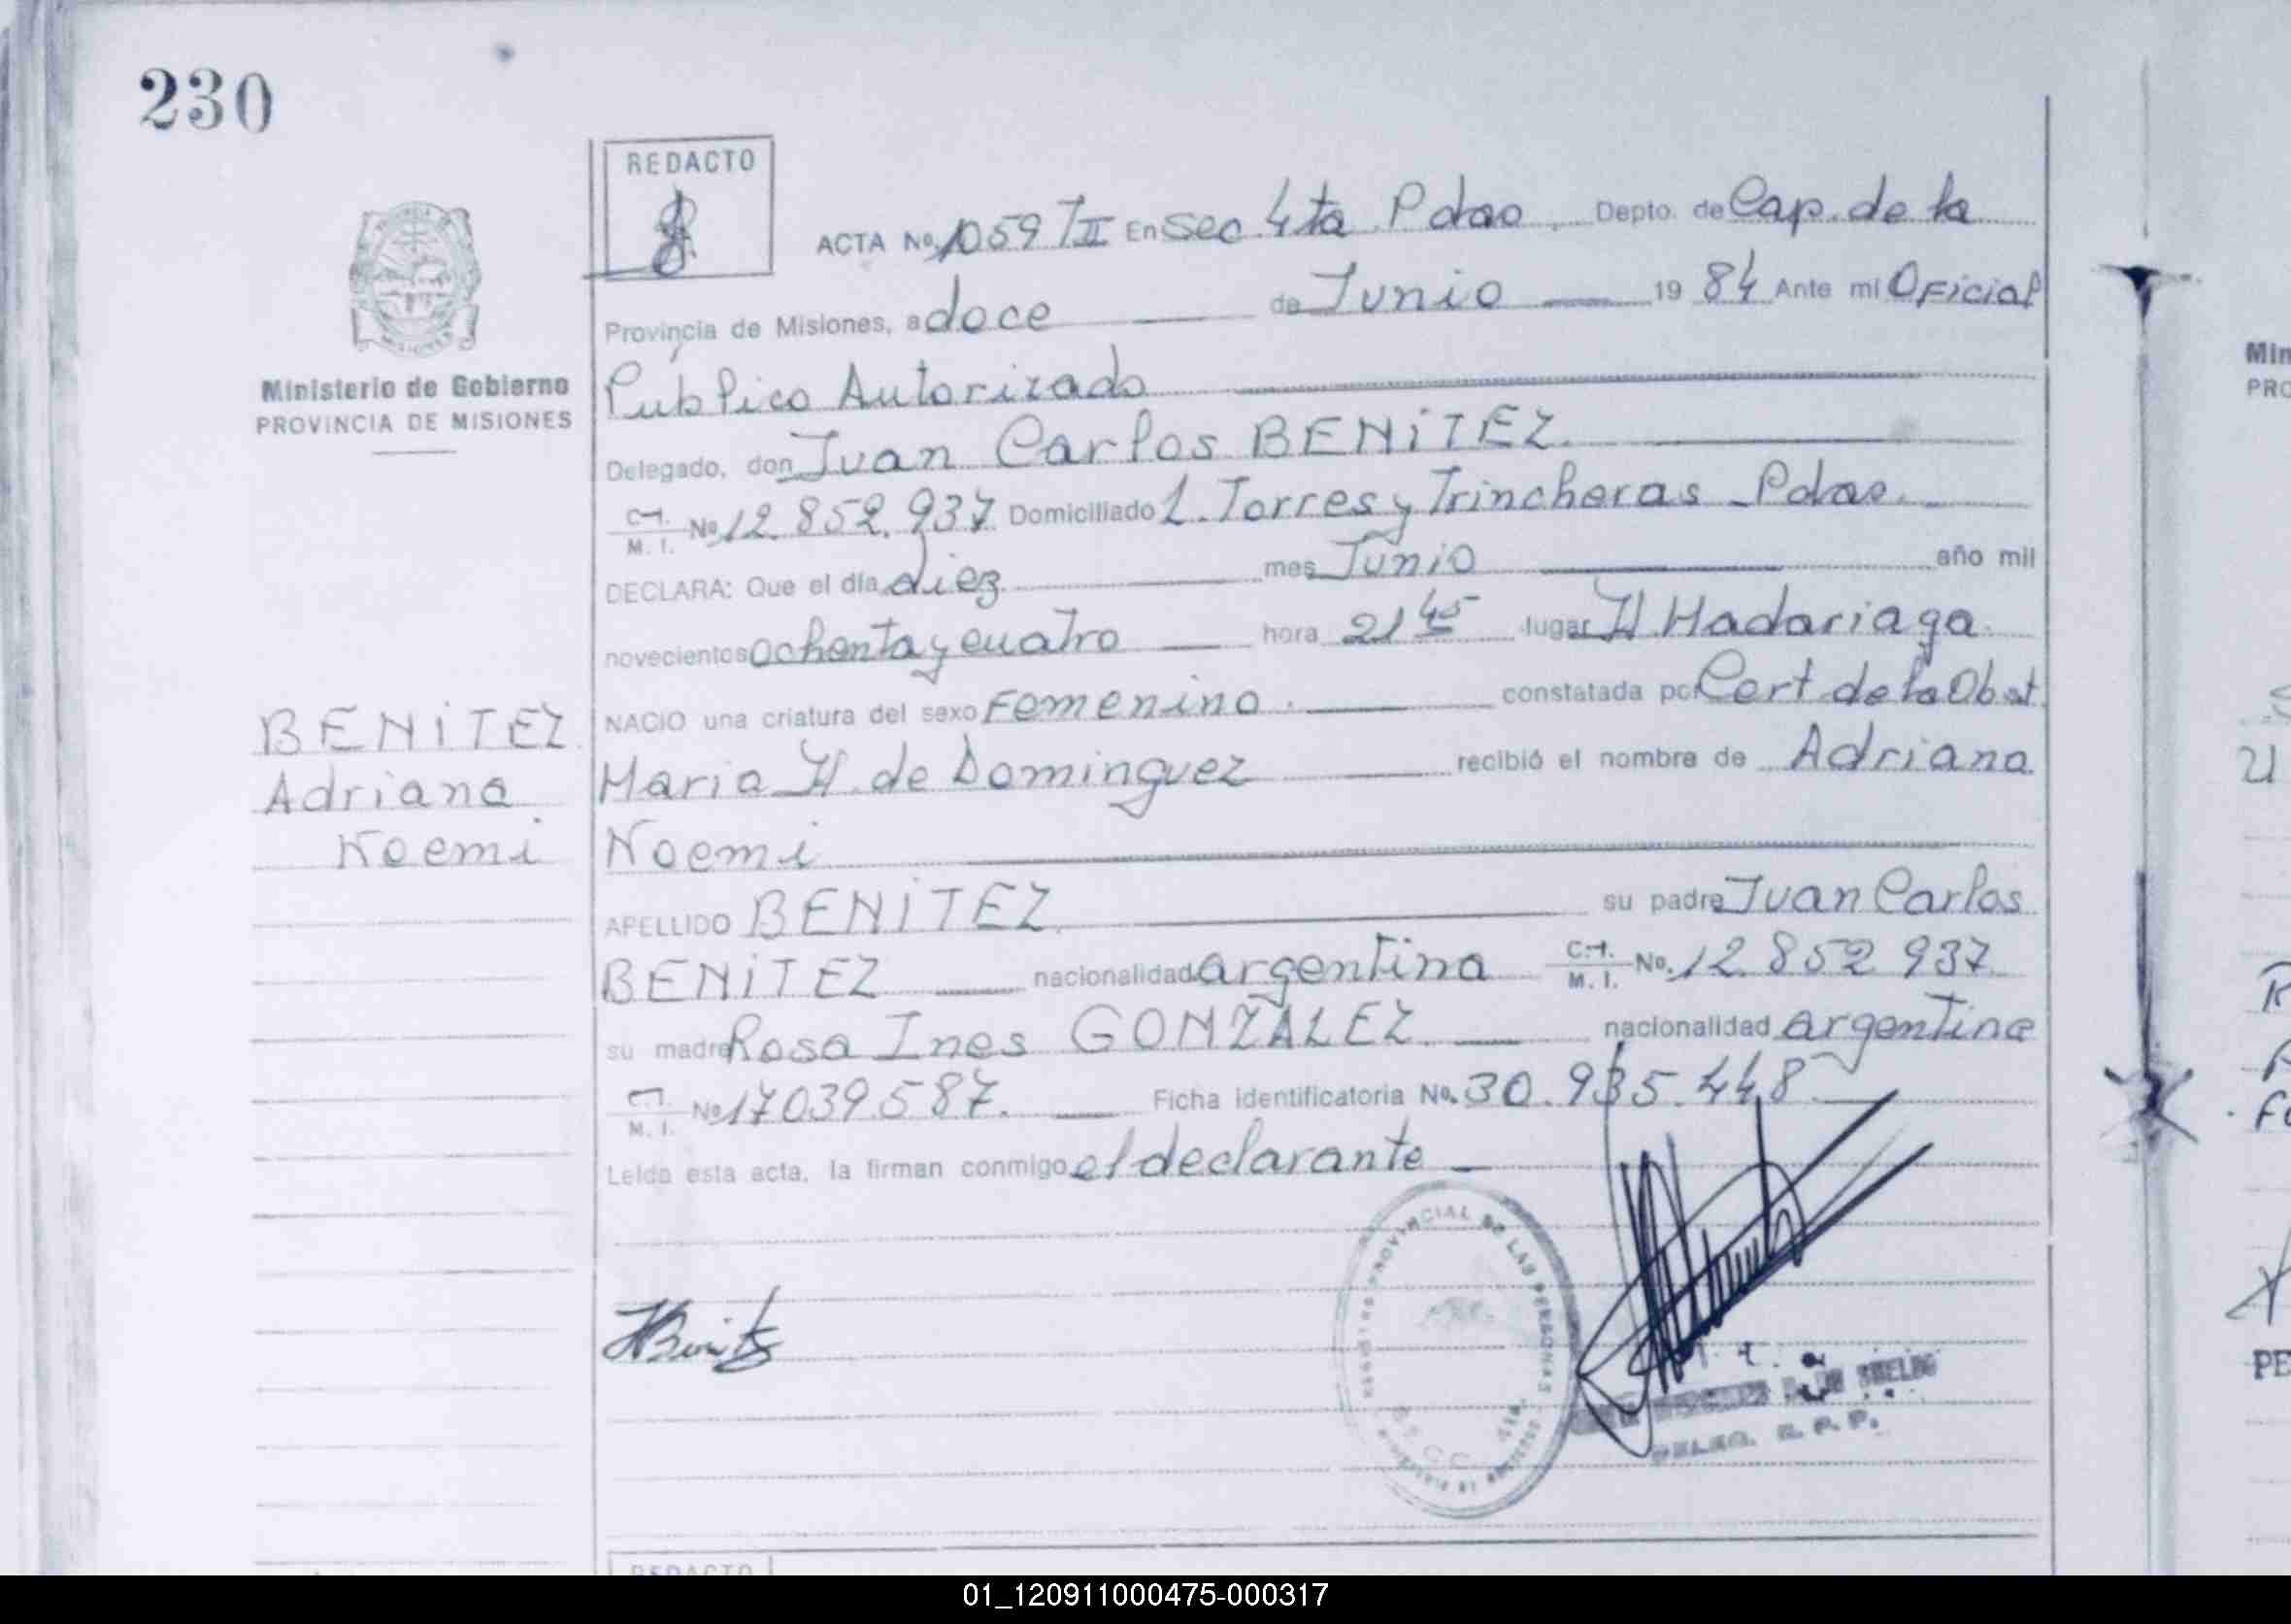 230
REDACTO
ACTA No. 1059 TII En Sec. 4ta. Pdas, Depto. de Cap. de la
Provincia de Misiones, a doce de Junio 19 84 Ante mí Oficial
Ministerio de Gobierno
PROVINCIA DE MISIONES
Público Autorizado
Delegado, don Juan Carlos BENITEZ.
C.I. M. I. No 12.852.937 Domiciliado L. Torres y Trincheras - Pdas.
DECLARA: Que el día diez mes Junio año mil
novecientos ochenta y cuatro hora 21 45 lugar H Madariaga.
NACIO una criatura del sexo Femenino. constatada por Cert. de la Obst.
Maria H. de Dominguez recibió el nombre de Adriana
Noemi
BENITEZ
Adriana
Noemi
APELLIDO BENITEZ. su padre Juan Carlos
BENITEZ nacionalidad argentina C.I. M. I. No. 12.852.937
su madre Rosa Ines GONZALEZ. nacionalidad argentina
C.I. M. I. No 17.039.587. Ficha identificatoria No. 30.935.448
Leída esta acta, la firman conmigo el declarante
PROVINCIAL DE LAS PERSONAS
DELEG. R. P. P.
REDACTO
Min
PRO
PE
01_120911000475-000317